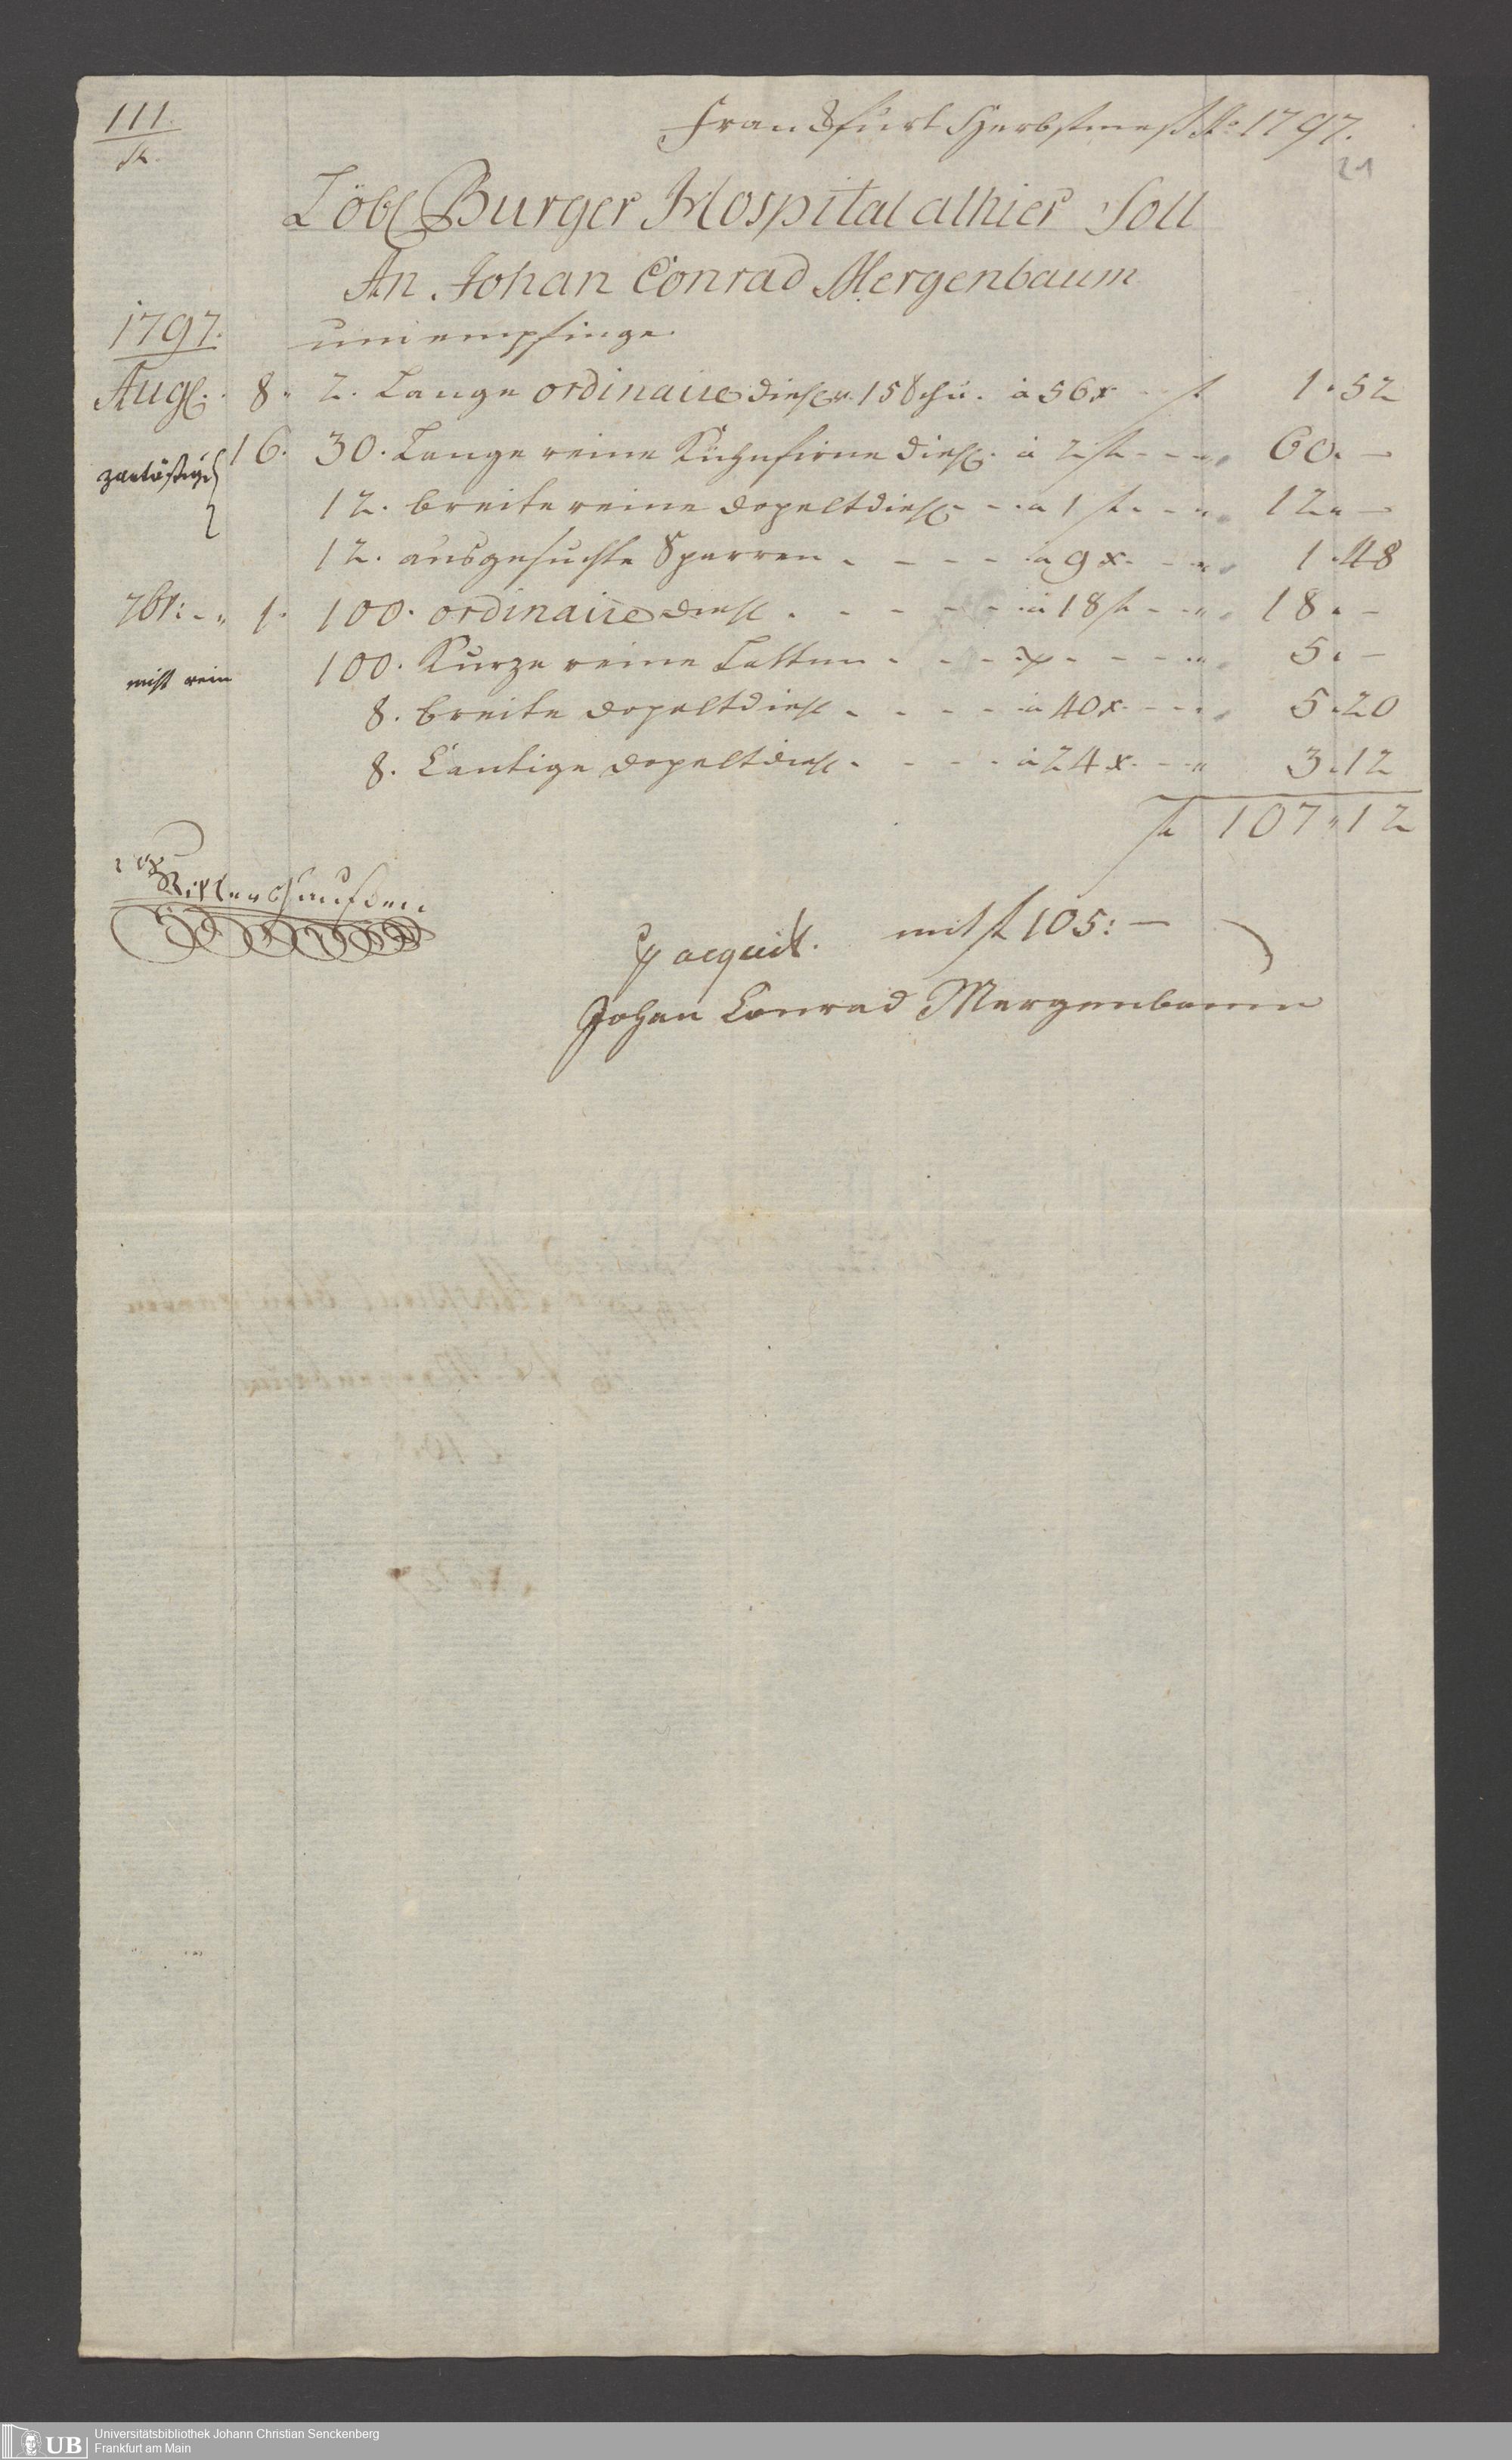 111.
fl.
Franckfurt Herbstmeß Ao: 1797.
21
Löbl Burger Hospital alhier Soll
An Johan Conrad Mergenbaum
1797. umempfinge.
Aug. 8. 2. Lange ordinaire diehl v. 15 Schu. à 56x fl 1. 52
16. 30. Lange reine diehl. à 2 fl - - " 60. —
12. breite reine dopeltdiehl - - à 1 fl. - - " 12. —
12. ausgesuchte Sparren - - - - à 9x. - - " 1. 48
7br: - " 1. 100. ordinaire diehl - - - - à 18 fl - - " 18. —
100. Kurze reine Latten - - - - - - " 5. —
nicht rein
8. breite dopeltdiehl - - - - à 40x. - - " 5. 20
8. Cantige dopeltdiehl - - - - à 24x. - - " 3. 12
fl 107 " 12
p acquit. mit fl 105: —
Johan Conrad Mergenbaum
UB Universitätsbibliothek Johann Christian Senckenberg
Frankfurt am Main